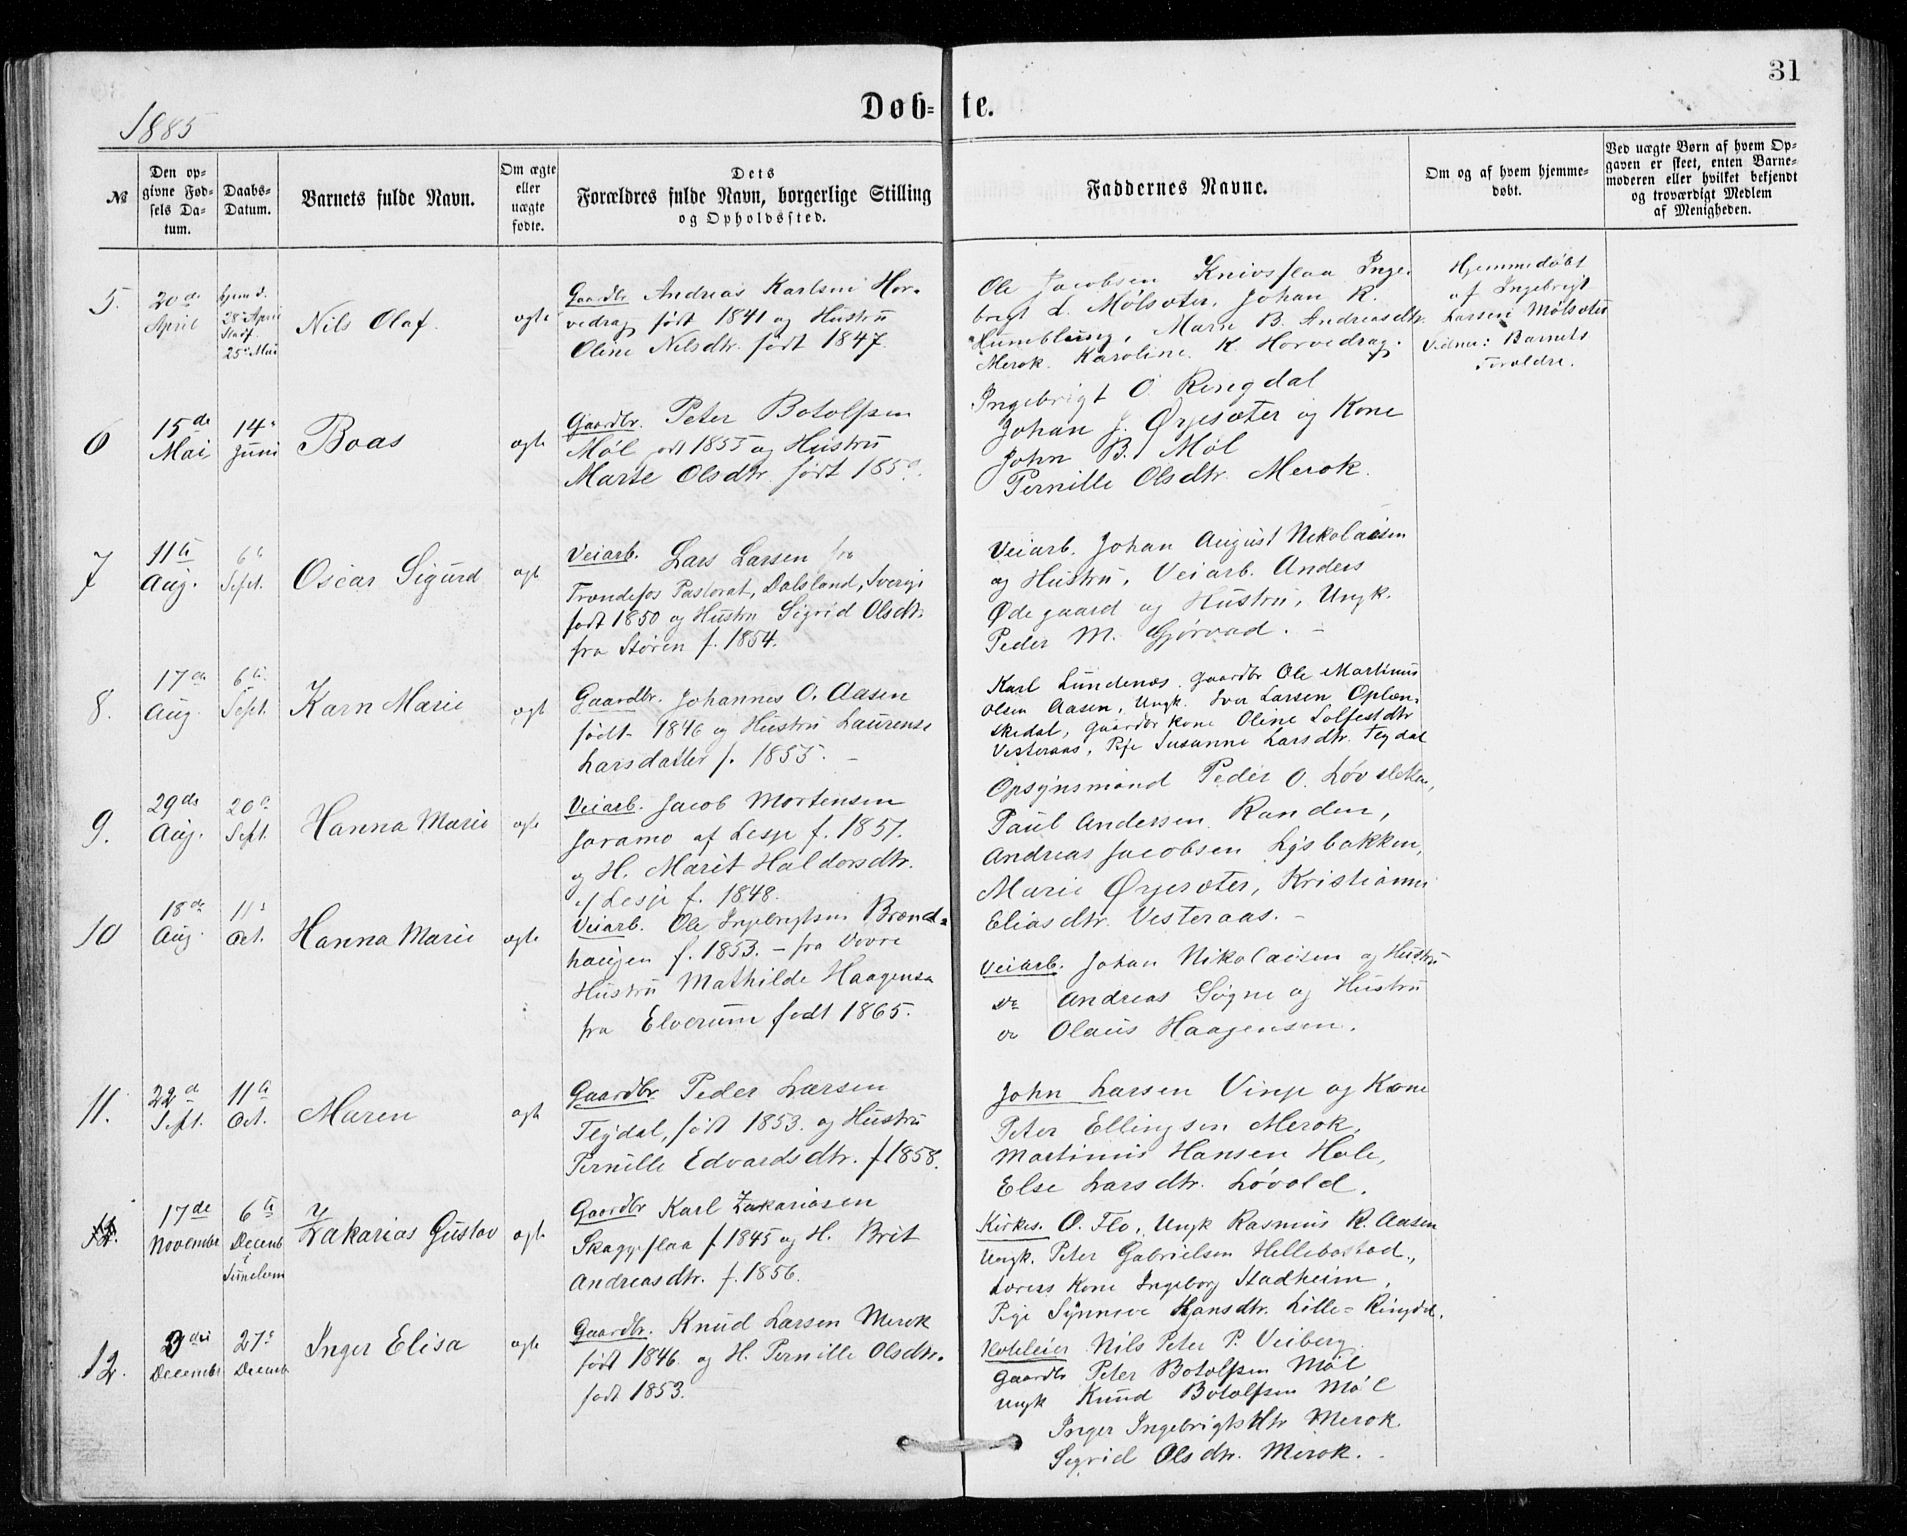 31
1885
Døb- te.
№
Den op-
givne Fød-
sels Da-
tum.
Daabs-
Datum.
Barnets fulde Navn.
Om ægte
eller
uægte
fødte.
Dets
Forældres fulde Navn, borgerlige Stilling
og Opholdssted.
Faddernes Navne.
Om og af hvem hjemme-
døbt.
Ved uægte Børn af hvem Op-
gaven er skeet, enten Barne-
moderen eller hvilket bekjendt
og troværdigt Medlem
af Menigheden.
5.
20de
April
hjem d.
28de April
Stadf.
25de Mai
Nils Olaf.
ægte
Gaardbr. Andreas Karlsen Hor-
vedrag født 1841 og Hustru
Oline Nilsdtr. født 1847
Ole Jacobsen Knivsflaa Inge-
brigt L. Mølsæter, Johan K.
Humblung, Marn B. Andreasdtr.
Merok. Karoline K. Horvedrag.
Hjemmedøbt
af Ingebrigt
Larsen Mølsæter
Vidner: Barnets
Forældre.
6
15de
Mai
14de
Juni
Boas
ægte
Gaardbr. Peter Botolfsen
Møl født 1855 og Hustru
Marte Olsdtr. født
Ingebrigt O. Ringdal
Johan J. Ørjesæter og Kone
John B. Møl
Pernille Olsdtr. Merok.
7
11te
Aug.
6te
Sept.
Oscar Sigurd
ægte
Veiarb. Lars Larsen fra
Pastorat, Dalsland, Sverige
født 1850 og Hustru Sigrid Olsdtr.
fra Støren f. 1854.
Veiarb. Johan August Nikolaisen
og Hustru, Veiarb. Anders
Ødegaard og Hustru, Ungk.
Peder M. Gjørvad. -
8.
17de
Aug.
6te
Sept.
Karn Marie
ægte
Gaardbr. Johannes O. Aasen
født 1846 og Hustru Laurense
Larsdatter f. 1855. -
Karl Lundenæs, Gaardbr Ole Martinus
Olsen Aasen, Ungk. Iver Larsen Oplæn-
skedal, Gaardbr Kone Oline Solfestdtr
Vesteraas, Pige Susanne Larsdtr. Flydal
9.
29de
Aug.
20de
Sept.
Hanna Marie
ægte
Veiarb. Jacob Mortensen
Joramo af Lesje f. 1851.
og H. Marit Haldorsdtr.
af Lesje f. 1848.
Opsynsmand Peder O. Løvsletten,
Paul Andersen Randen,
Andreas Jacobsen Lysbakken,
Marie Ørjesæter, Kristianne
Eliasdtr. Vesteraas. -
10
18de
Aug.
11te
Oct.
Hanna Marie
ægte
Veiarb. Ole Ingebrigtsen Brænd-
haugen f. 1853. - fra Dovre
Hustru Mathilde Haagensen
fra Elverum født 1865.
Veiarb. Johan Nikolaisen og Hustru
do Andreas Søgne og Hustru
do Olaus Haagensen.
11.
22de
Sept.
11te
Oct.
Maren
ægte
Gaardbr Peder Larsen
Flydal, født 1853. og Hustru
Pernille Edvardsdtr. f 1858.
John Larsen Vinje og Kone
Peter Ellingsen Merok,
Martinus Hansen Hole,
Else Larsdtr. Løvold.
17de
Novembr
6te
Decemb
i
Sunelven
Zakarias Gustav
ægte
Gaardbr Karl Zakariasen
Skageflaa f 1845 og H. Brit
Andreasdtr. f. 1856.
Kirkes. O. Flo, Ungk Rasmus R. Aasen
Ungk. Peter Gabrielsen Hellebostad.,
Kone Ingeborg Stadheim,
Pige Synneve Hansdtr. Lille-Ringdal.
12.
Decembr
27de
Decemb
Inger Elisa
ægte
Gaardbr. Knud Larsen Merok
født 1846 og H. Pernille Olsdtr.
født 1853.
Hoteleier Nils Peter P. Veiberg.
Gaardbr Peter Botolfsen Møl
Ungk Knud Botolfsen Møl
Inger Ingebrigtsdtr Merok.
Sigrid Olsdtr. Merok.